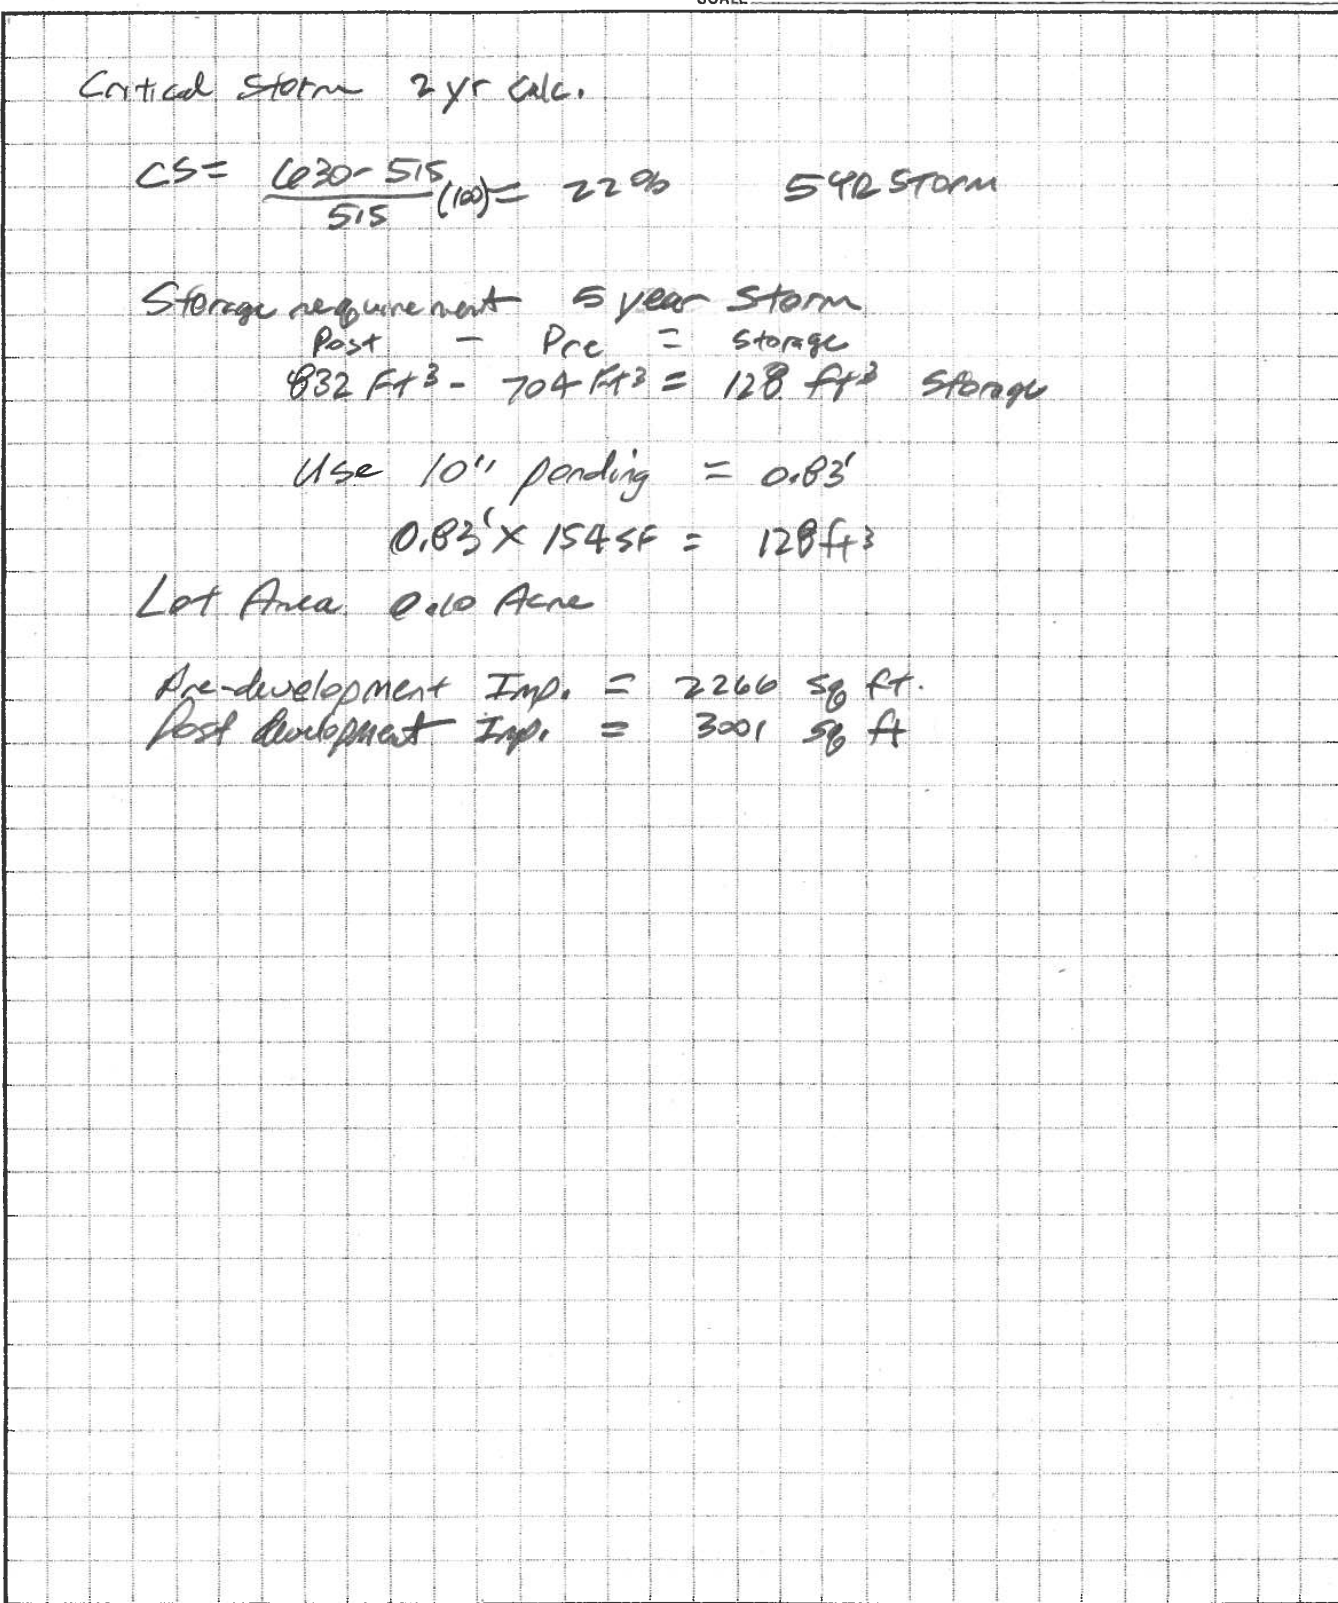 SCALE
Critical Storm 2 yr Calc.
CS = 630 - 515
515 (100) = 22% 5 YR STORM
Storage requirement 5 year Storm
Post - Pre = Storage
832 Ft³ - 704 Ft³ = 128 ft³ Storage
Use 10" ponding = 0.83'
0.83' x 154 SF = 128 ft³
Lot Area 0.10 Acre
Pre-development Imp. = 2266 sq ft.
Post development Imp. = 3001 sq ft